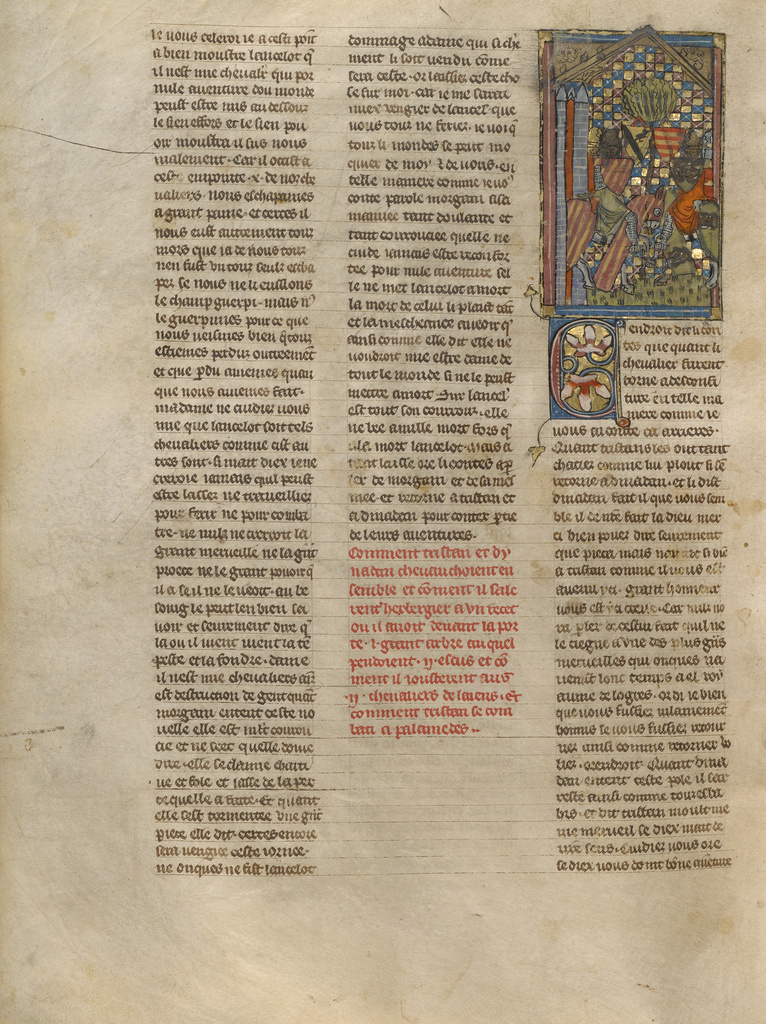 le vous celeroie a cesti point
a bien moustre lancelot q̄
il nest mie cheualr̄ qui por
nule auenture dou monde
peust estre mis au dessour
le sien effors et le sien pou
oir moustra il sus nous
malement · Car il ocist a
cest empointe · x · de nos che
ualiers · nous eschapames
a grant paine · et certes il
nous eust autrement tour
mors que ia de nous tour
nen fust un tout seul escha
pe se nous ne li eussons
le champ guerpi · mais n9
le guerpimes pour ce que
nous veismes bien q̄ tour
estiemes perdus outreement
et que pdu auiemes quan
que nous auiemes fait ·
ma dame ne cuidies vous
mie que lancelot soit tels
cheualiers comme cist au
tres sont · si mait diex ie ne
croroie iamais quil peust
estre lasses ne trauveillies
pour ferir ne pour comba
tre · ne nulz ne creroit la
grant merueille ne la grāt
proece ne le grant pouoir q̄
il a se il ne le veoit · au be
soing le peut len bien sa
uoir et seurement dire q̄
la ou il vient vient la tē
peste et la foudre · dame
il nest mie cheualiers ains
est destruction de gent quāt
morgain entent ceste no
uelle elle est mlt courou
cie et ne scet quelle doiue
dire · elle se claime chaiti
ue et fole et lasse de la per
te quelle a faite · Et quant
elle sest tormentee vne grāt
piece elle dit · certes encore
sera vengie ceste iornee ·
ne onques ne fist lancelot
dommage a dame qui si chie
ment li soit vendu cōme
sera ceste · or laissies ceste cho
se sur moi · car ie me sarai
miex vengier de lancel · que
vous tour ne feries · ie voi q̄
tour li mondes se peut mo
quier de moy ⁊ de vous · en
telle maniere comme ie vo9
conte parole morgain a sa
maniee tant doulante et
tant courrouciee quelle ne
cuide iamais estre reconfor
tee pour nule auenture sel
le ne met lancelot a mort
la mort de celui li plaist tāt
et la mescheance a veoir q̄
ainsi comme elle dit elle ne
voudroit mie estre dame de
tout le monde si ne le peust
mettre a mort Sur lancel ·
est tout son courrour · elle
ne bee a mille mort fors q̄
a la mort lancelot · Mais a
tant laisse ore li contes a p
ler de morgain et de sa mes
niee · et retorne a tristan et
a dinadan pour conter ptie
de leurs auentures ·
Comment tristan et dy
nadan cheuauchoient en
semble et cōment il sale
rent herbergier a vn recet
ou il auoit deuant la por
te · i · grant arbre auquel
pendoient · ij · escus et cō
ment il iousterent aus
· ij · cheualiers de laiens · Et
comment tristan se com
bati a palamedes ··
Cendroit dit li con
tes que quant li
cheualier furent
torne a desconfi
ture en telle ma
niere comme ie
vous ai conte ca arrieres ·
Quant tristans les out tant
chacies comme lui plout si se
retorne a dinadan · et li dist
dinadan fait il que vous sem
ble il de nr̄e fait la dieu mer
ci bien poues dire seurement
que pieca mais nauint si biē
a tristan comme il nous est
auenu ya · grant honneur
nous est ya creue · Car nuls no
ra pler de cestui fait quil ne
le tiegne a vne des plus grās
merueilles qui onques na
uenist lonc temps a el roy
aume de logres · or di ie bien
que nous fussies vilainemēt
honnis se nous fussies retour
nes ainsi comme retorner vo
lies · orendroit · Quant dina
dan entent ceste pole il sar
reste ainsi comme tour esba
his · et dit tristan moult me
me merueil se diex mait de
vr̄e sens · Cuidies vous ore
se diex vous doint bōne auēture